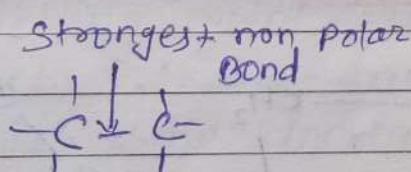 Strongest non Polar
Bond
-C - C-